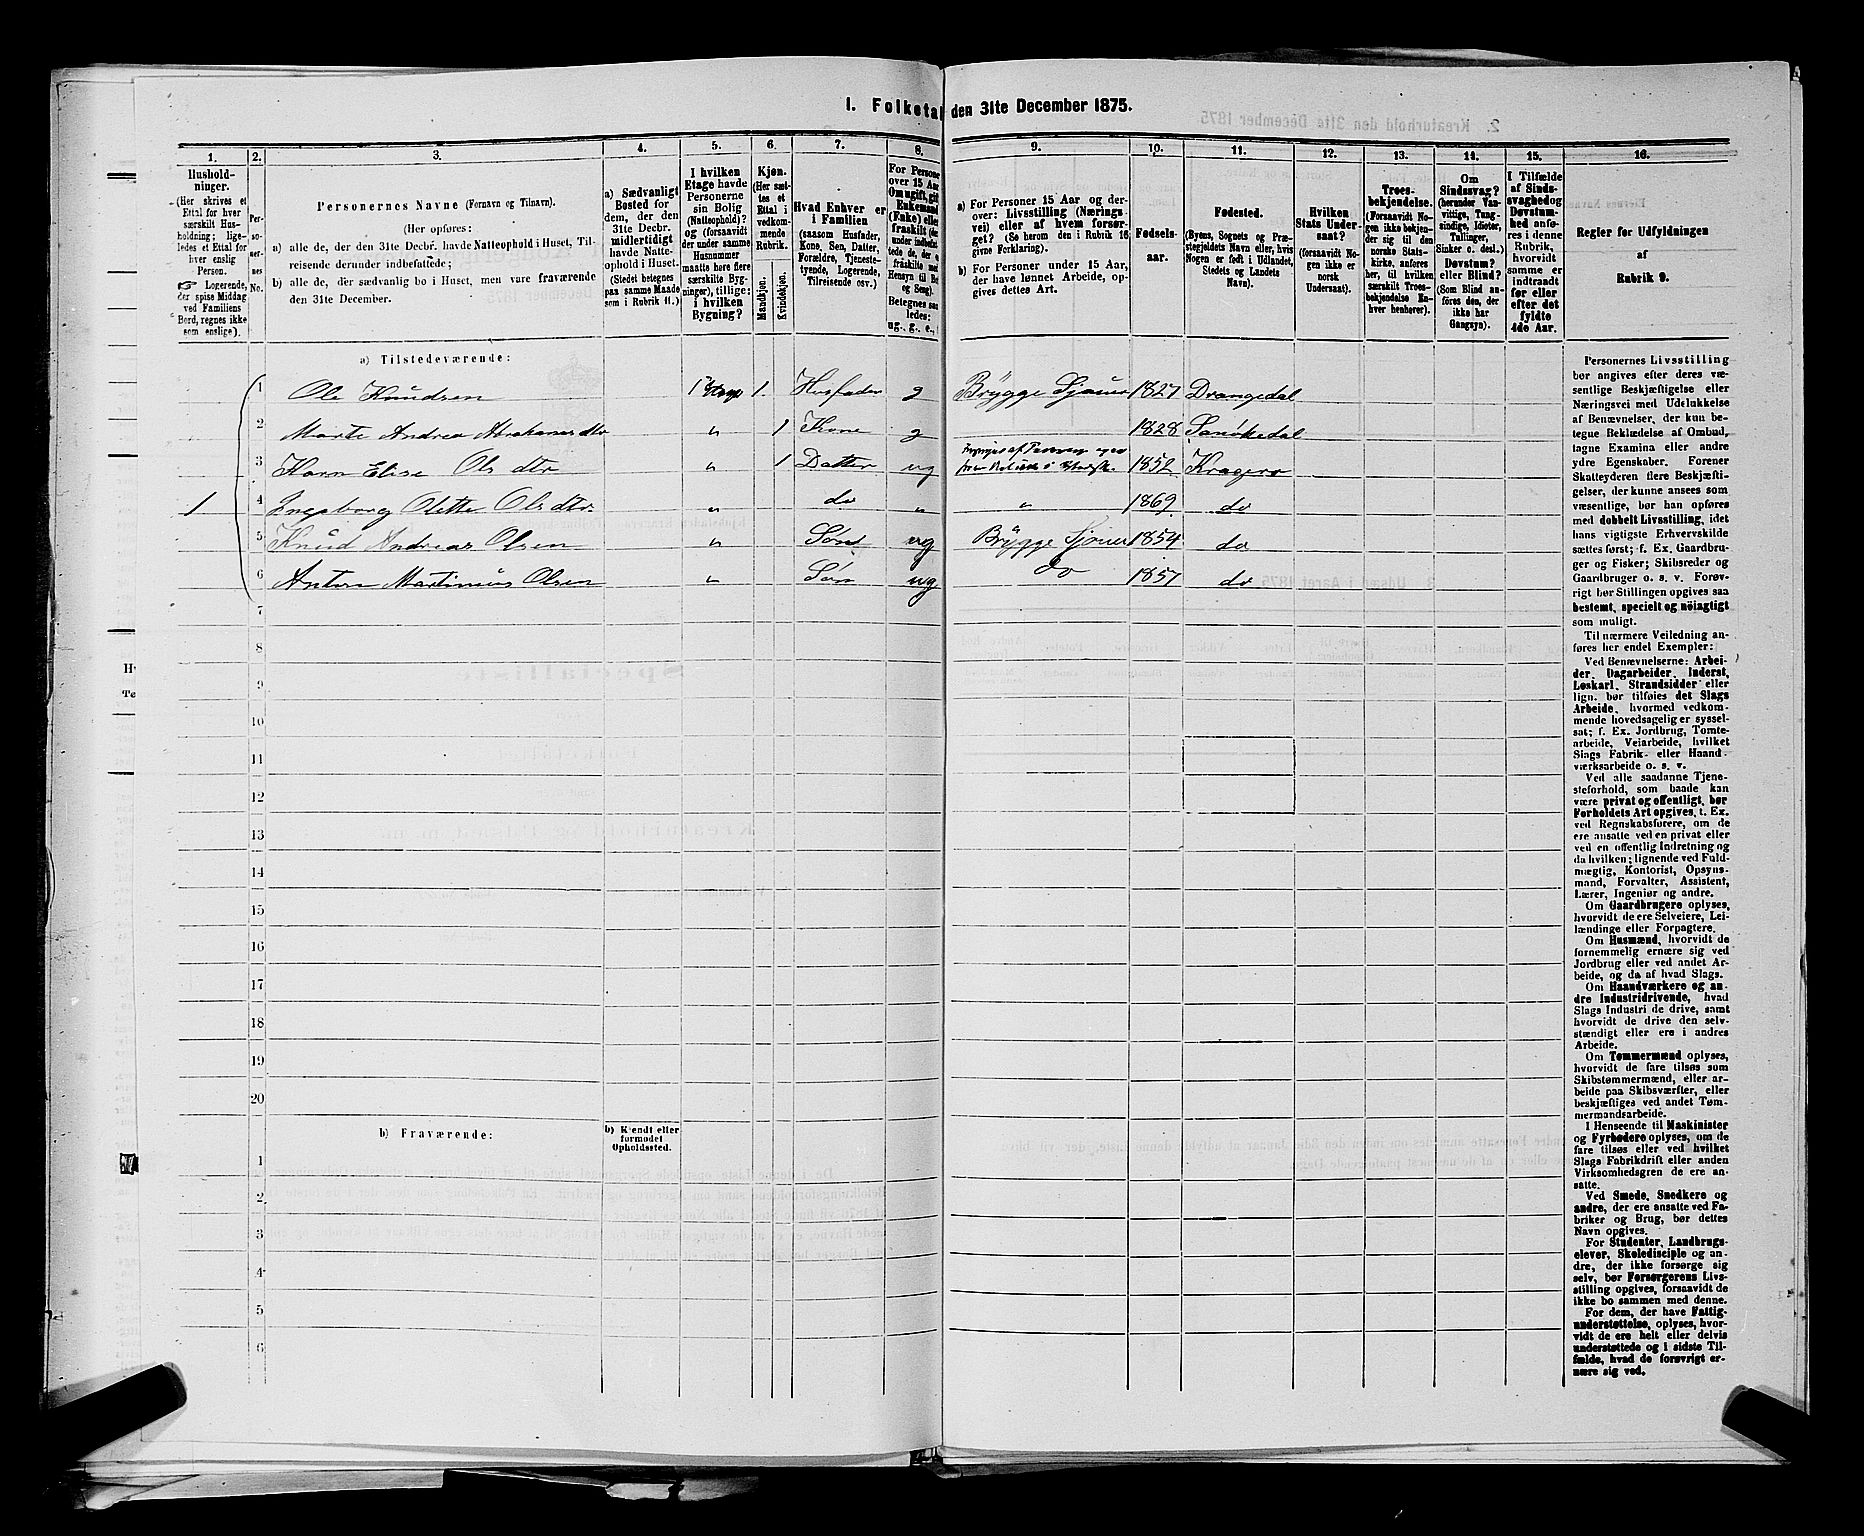 I. Folketal den 31te December 1875.
1. 2. 3. 4. 5. 6. 7. 8. 9. 10. 11. 12. 13. 14. 15. 16.
Hushold-
ninger.
(Her skrives et
Ettal for hver
særskilt Hus-
holdning; lige-
ledes et Ettal for
hver enslig
Person.
Logerende,
der spise Middag
ved Familiens
Bord, regnes ikke
som enslige).
Per-
so-
ner-
nes
No.
Personernes Navne (Fornavn og Tilnavn).
(Her opføres:
a) alle de, der den 31te Decbr. havde Natteophold i Huset, Til-
reisende derunder indbefattede;
b) alle de, der sædvanlig bo i Huset, men vare fraværende
den 31te December.
a) Sædvanligt
Bosted for
dem, der den
31te Decbr.
midlertidigt
havde Natte-
ophold i Huset.
(Stedet betegnes
paa samme Maade
som i Rubrik 11.)
I hvilken
Etage havde
Personerne
sin Bolig
(Natteophold)?
og (forsaavidt
der under samme
Husnummer
maatte høre flere
særskilte Byg-
ninger), tillige:
i hvilken
Bygning?
Kjøn.
(Her sæt-
tes et
Ettal i
vedkom-
mende
Rubrik.
Mandkjøn.
Kvindekjøn.
Hvad Enhver er
i Familien
(saasom Husfader,
Kone, Søn, Datter,
Forældre, Tjeneste-
tyende, Logerende,
Tilreisende osv.)
For Persone
over 15 Aar
Om ugift, gift
Enkemand
(Enke) eller
fraskilt
Betegnes saa
ledes:
ug., g., e.,
a) For Personer 15 Aar og der-
over: Livsstilling (Nærings-
vei) eller af hvem forsør-
get? (Se herom den i Rubrik 16
givne Forklaring).
b) For Personer under 15 Aar,
der have lønnet Arbeide, op-
gives dettes Art.
Fødsels-
aar.
Fødested.
(Byens, Sognets og Præ-
stegjeldets Navn eller, hvis
Nogen er født i Udlandet,
Stedets og Landets
Navn).
Hvilken
Stats Under-
saat?
(forsaavidt No-
gen ikke er
norsk
Undersaat).
Troes-
bekjendelse.
(Forsaavidt No-
gen ikke bekjen-
der sig til den
norske Stats-
kirke, anføres
her, til hvilken
særskilt Troes-
bekjendelse En-
hver henhører).
Om
Sindssvag?
(herunder Van-
vittige, Tung-
sindige, Idioter,
Tullinger,
Sinker o. desl.)
Døvstum?
eller Blind?
(Som Blind an-
føres den, der
ikke har
Gangsyn).
I Tilfælde
af Sinds-
svaghed og
Døvstum-
hed anfø-
res i denne
Rubrik,
hvorvidt
samme er
indtraadt
før eller
efter det
fyldte
4de Aar.
Regler for Udfyldningen
af
Rubrik 9.
a) Tilstedeværende:
1 Ole Knudsen 1 Etage 1. Husfader g Brygge Sjouer 1827 Drangedal
2 Marte Andrea Abrahamsdtr " 1 Kone g 1828 Sanøkedal
3 Karn Elise Olsdtr " 1 Datter ug 1852 Kragerø
1 4 Ingeborg Olette Olsdtr " do " " 1869 do
5 Knud Andreas Olsen " Søn ug Brygge Sjouer 1854 do
6 Anton Martinius Olsen " Søn ug do 1857 do
7
8
9
10
11
12
13
14
15
16
17
18
19
20
b) Fraværende:
b) Kjendt eller
formodet
Opholdssted.
1
2
3
4
5
6
Personernes Livsstilling
bør angives efter deres væ-
sentlige Beskjæftigelse eller
Næringsvei med Udelukkelse
af Benævnelser, der kun be-
tegne Beklædelse af Ombud,
tagne Examina eller andre
ydre Egenskaber. Forener
Skatteyderen flere Beskjæfti-
gelser, der kunne ansees som
væsentlige, bør han opføres
med dobbelt Livsstilling, idet
hans vigtigste Erhvervskilde
sættes først; f. Ex. Gaardbru-
ger og Fisker; Skibsreder og
Gaardbruger o. s. v. Forøv-
rigt bør Stillingen opgives saa
bestemt, specielt og nöiagtigt
som muligt.
Til nærmere Veiledning an-
føres her endel Exempler:
Ved Benævnelserne: Arbei-
der, Dagarbeider, Inderst,
Løskarl, Strandsidder eller
lign. bør tilføies det Slags
Arbeide, hvormed vedkom-
mende hovedsagelig er syssel-
sat; f. Ex. Jordbrug, Tomte-
arbeide, Veiarbeide, hvilket
Slags Fabrik- eller Haand-
værksarbeide o. s. v.
Ved alle saadanne Tjene-
steforhold, som baade kan
være privat og offentligt, bør
Forholdets Art opgives, t. Ex.
ved Regnskabsførere, om de
ere ansatte ved en privat eller
ved en offentlig Indretning og
da hvilken; lignende ved Fuld-
mægtig, Kontorist, Opsyns-
mand, Forvalter, Assistent,
Lærer, Ingeniør og andre.
Om Gaardbrugere oplyses,
hvorvidt de ere Selveiere, Lei-
lændinge eller Forpagtere.
Om Husmænd, hvorvidt de
fornemmelig ernære sig ved
Jordbrug eller ved andet Ar-
beide, og da af hvad Slags.
Om Haandværkere og an-
dre Industridrivende, hvad
Slags Industri de drive, samt
hvorvidt de drive den selv-
stændigt eller ere i andres
Arbeide.
Om Tømmermænd oplyses,
hvorvidt de fare tilsøs som
Skibstømmermænd, eller ar-
beide paa Skibsværfter, eller
beskjæftiges ved andet Tøm-
mermandsarbeide.
I Henseende til Maskinister
og Fyrbødere oplyses, om de
fare tilsøs eller ved hvilket
Slags Fabrikdrift eller anden
Virksomhedsgren de ere an-
satte.
Ved Smede, Snedkere og
andre, der ere ansatte ved Fa-
briker og Brug, bør dettes
Navn opgives.
For Studenter, Landbrugs-
elever, Skoledisciple og an-
dre, der ikke forsørge sig
selv, bør Forsørgerens Livs-
stilling opgives, forsaavidt de
ikke bo sammen med denne.
For dem, der have Fattig-
understøttelse, oplyses, hvor-
vidt de ere helt eller delvis
understøttede og i sidste Til-
fælde, hvad de forøvrigt er-
nære sig ved.